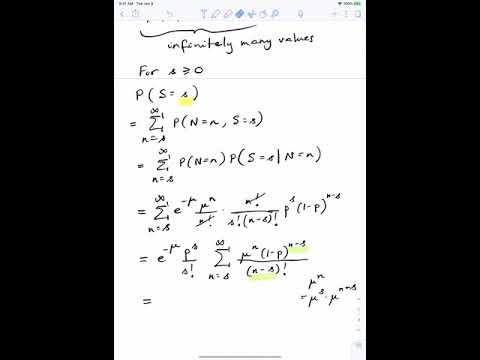 9:41 AM Tue Jan 9
infinitely many values
For s ≥ 0
P ( S = s )
= ∑_{n=s}^{∞} P(N=n, S=s)
= ∑_{n=s}^{∞} P(N=n) P(S=s | N=n)
= ∑_{n=s}^{∞} e^{-μ} μ^n / n! · n! / s!(n-s)! p^s (1-p)^{n-s}
= e^{-μ} p^s / s! ∑_{n=s}^{∞} μ^n (1-p)^{n-s} / (n-s)!
μ^n
= = μ^s · μ^{n-s}